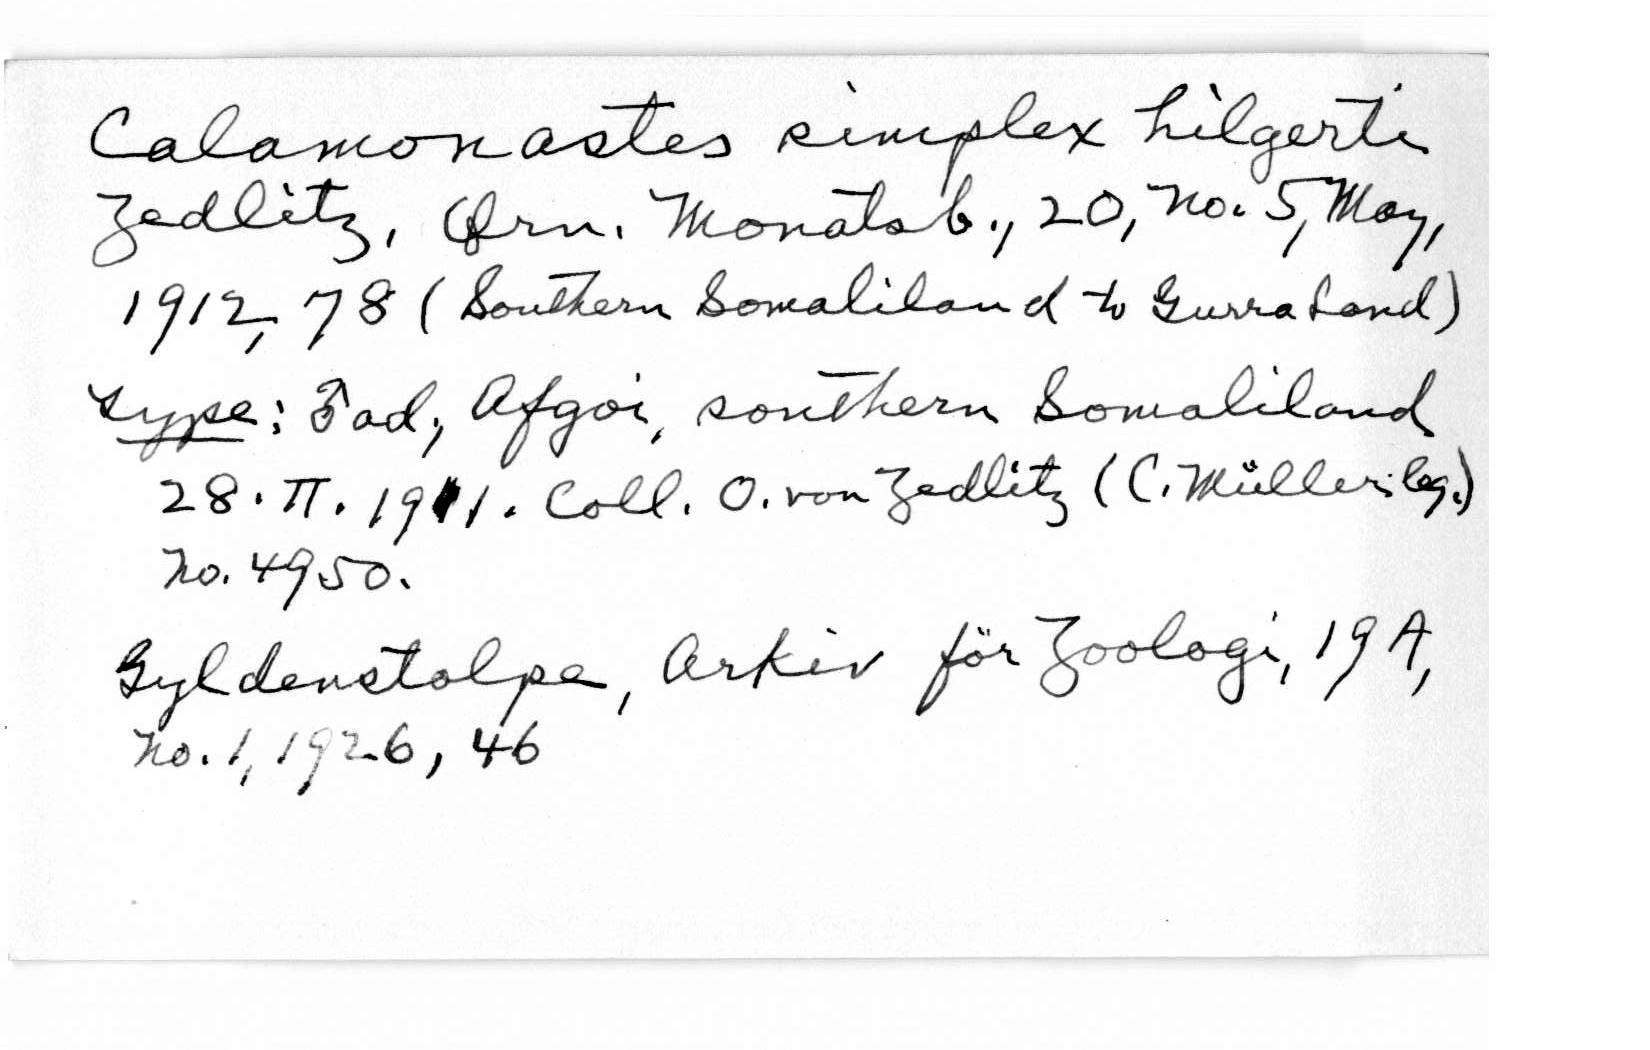 Calamonastes simplex hilgerti
Zedlitz, Orn. Monatsb., 20, no. 5, May,
1912, 78 (Southern Somaliland to Gurraland)
Type: ♂ ad., Afgoi, southern Somaliland
28. II. 1911. Coll. O. von Zedlitz (C. Müller leg.)
no. 4950.
Gyldenstolpe, Arkiv för Zoologi, 19A,
no. 1, 1926, 46